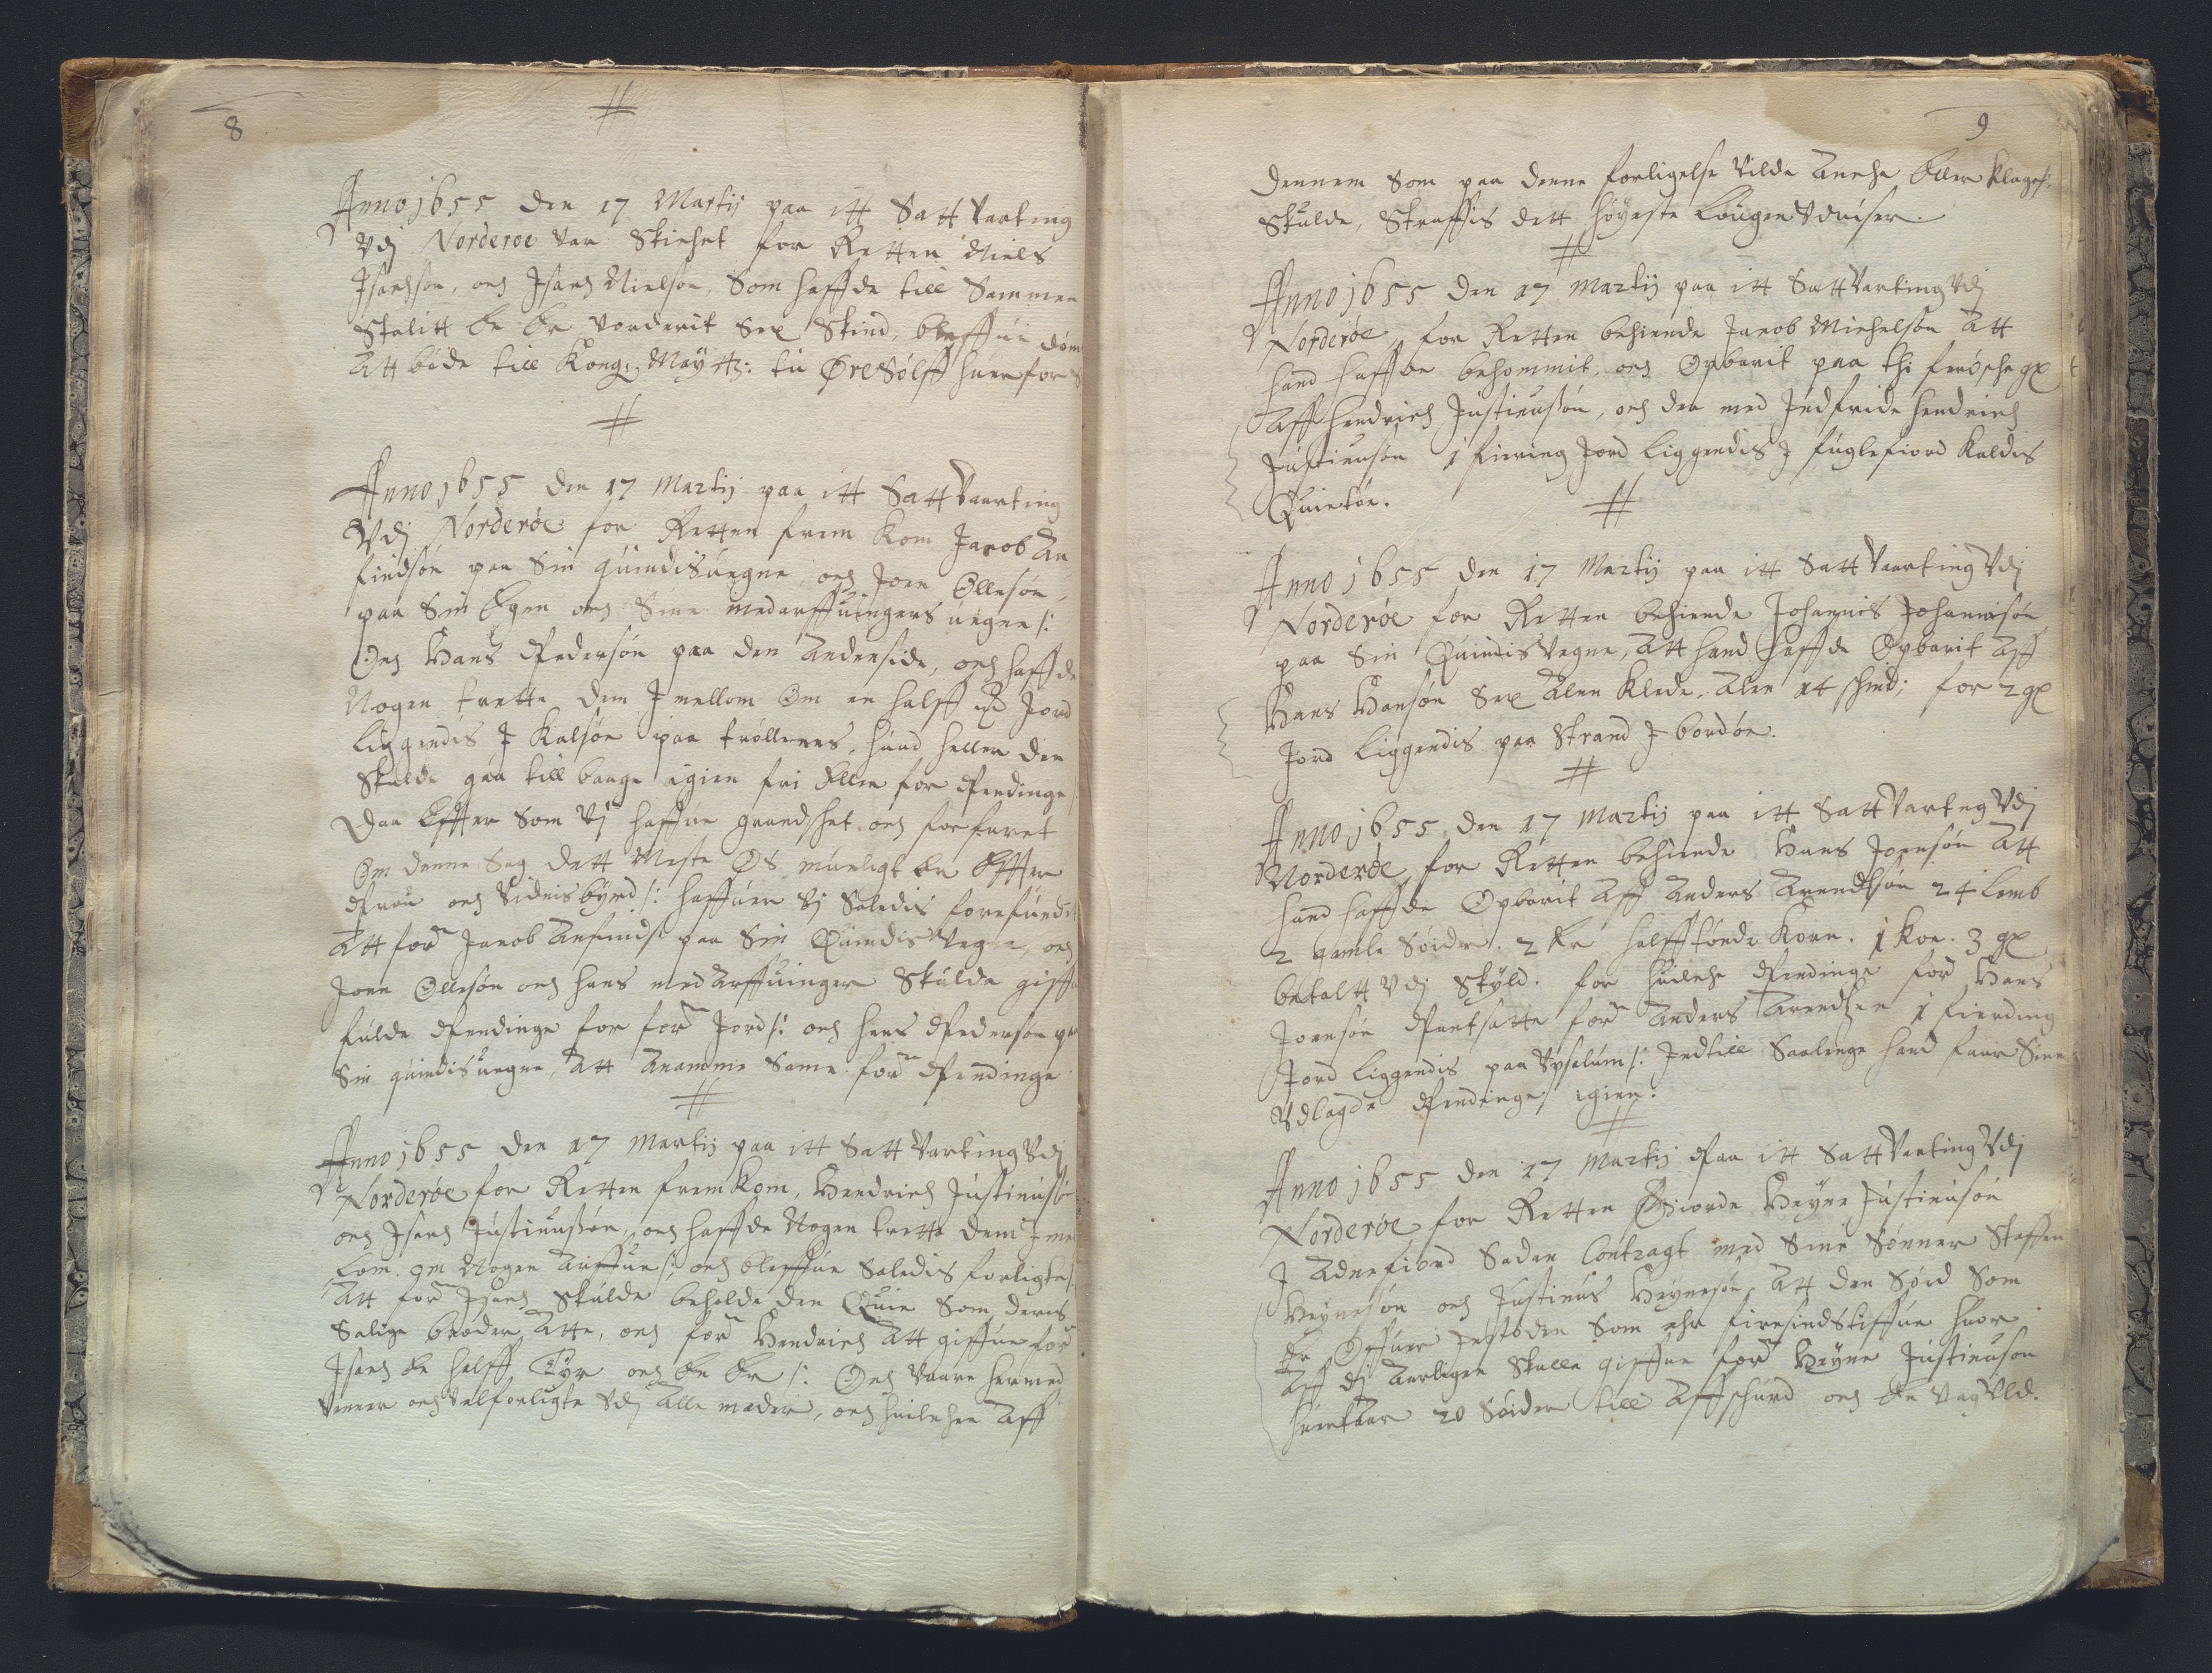 8
Anno 1655 den 17 Martij paa itt Satt Vaarting
Vdj Norderøe Var Skicket for Retten Niels
Isachsøn, och Isach Nielsøn, Som haffde till Sammen
Stalitt Vorderit Sex Skind, bleffue döm
Att böde till Kong: Maytt: tu Øre Sölff huer for
Anno 1655 den 17 Martij paa itt Satt Vaarting
Vdj Norderöe for Retten frem Kom Jacob An
findsøn paa Sin quindis uegne, och Joen Ollesøn,
paa Sin Egen och Sine medarffuingers uegne /:
Och Hans Pedersøn paa den Anden side, och haffde
Nogen trette dem Imellom Om en halff Jord
liggendis I Kalsøe paa tröllenes, huad heller den
Skulde gaa till baage igien fri Eller for Pendinge
Daa Effter Som Vj haffue grandsket och forfaret
Om denne Sag dett Meste Os mueligt Er Effter
Prou och Vidnisbyrd /: haffuer Vj Saledis forefundet
Att for: Jacob Anfinds: paa Sin Quindis Vegne, och
Joen Ollesøn och hans med Arffuinger Skulde giffue
fulde Pendinge for for: Jord /: och Hans Pedersøn paa
Sin quindis uegne, Att Anamme Same for: Pendinge
Anno 1655 den 17 Martij paa itt Satt Varting Vdj
Norderöe for Retten fremkom, Hendrich Justinusøn
och Isach Justinusøn, och haffde Nogen trette dem Imel
lom. om Nogen Arffue /: och bleffue Saledis forligte /:
Att for: Isach Skulde beholde den Quie Som deris
Salige broder Atte, och for: Hendrich Att giffue for:
Isach En halff Tyr och En /: Och Vaare hermed
Venner och Velforligte Vdj Alle maader, och huilchen Aff
9
Dennem Som paa denne forligelse Vilde Ancke Eller Klage,
Skulde, Straffis dett höyeste Lougen Vduiser.
Anno 1655 den 17 Martij paa itt Satt Varting Vdj
Norderöe, for Retten bekiende Jacob Michelsøn Att
hand haffde bekommit, och Opbarit paa thi ferösche gl
Aff Hendrich Justinusøn, och der med Indfride Hendrich
Justinusøn 1 fiering Jord Liggendis I fuglefiord Kaldis
Anno 1655 den 17 Martij paa itt Satt Vaarting Vdj
Norderöe for Retten bekiende Johannis Johannisøn
paa Sin Quindis Vegne, Att hand haffde Opbarit Aff
Hans Hansøn Sex Alen Klede. Alen 14 schind; for 2 gl
Jord Liggendis paa Strand I bordöe.
Anno 1655 den 17 Martij paa itt Satt Varting Vdj
Norderöe, for Retten bekiende Hans Joensøn Att
hand haffde Opbarit Aff Anders Arendtsøn 24 Lamb
2 gamle Söider. 2 halfftönde Korn. 1 Koe. 3 gl
betaltt Vdj Skyld. for huilche Pendinge for: Hans
Joensøn Pantsatte for: Anders Arendtzen 1 fierding
Jord Liggendis paa Sysalum /: Indtill Saalenge hand faar Sine
Vdlagde Pendinge, igien.
Anno 1655 den 17 Martij Paa itt Satt Varting Vdj
Norderöe, for Retten Giorde Heyne Justinusøn
I Adnefiord Sadan Contragt med Sine Sønner Steffen
Heynesøn och Justinus Heynesøn, Att den Söid Som
Er Offuer Som ehr firesindstiffue huor
Aff dj Aarligen Skulle giffue for: Heyne Justinusøn
huert Aar 20 Söider till Affschurd och En Vag Vld.